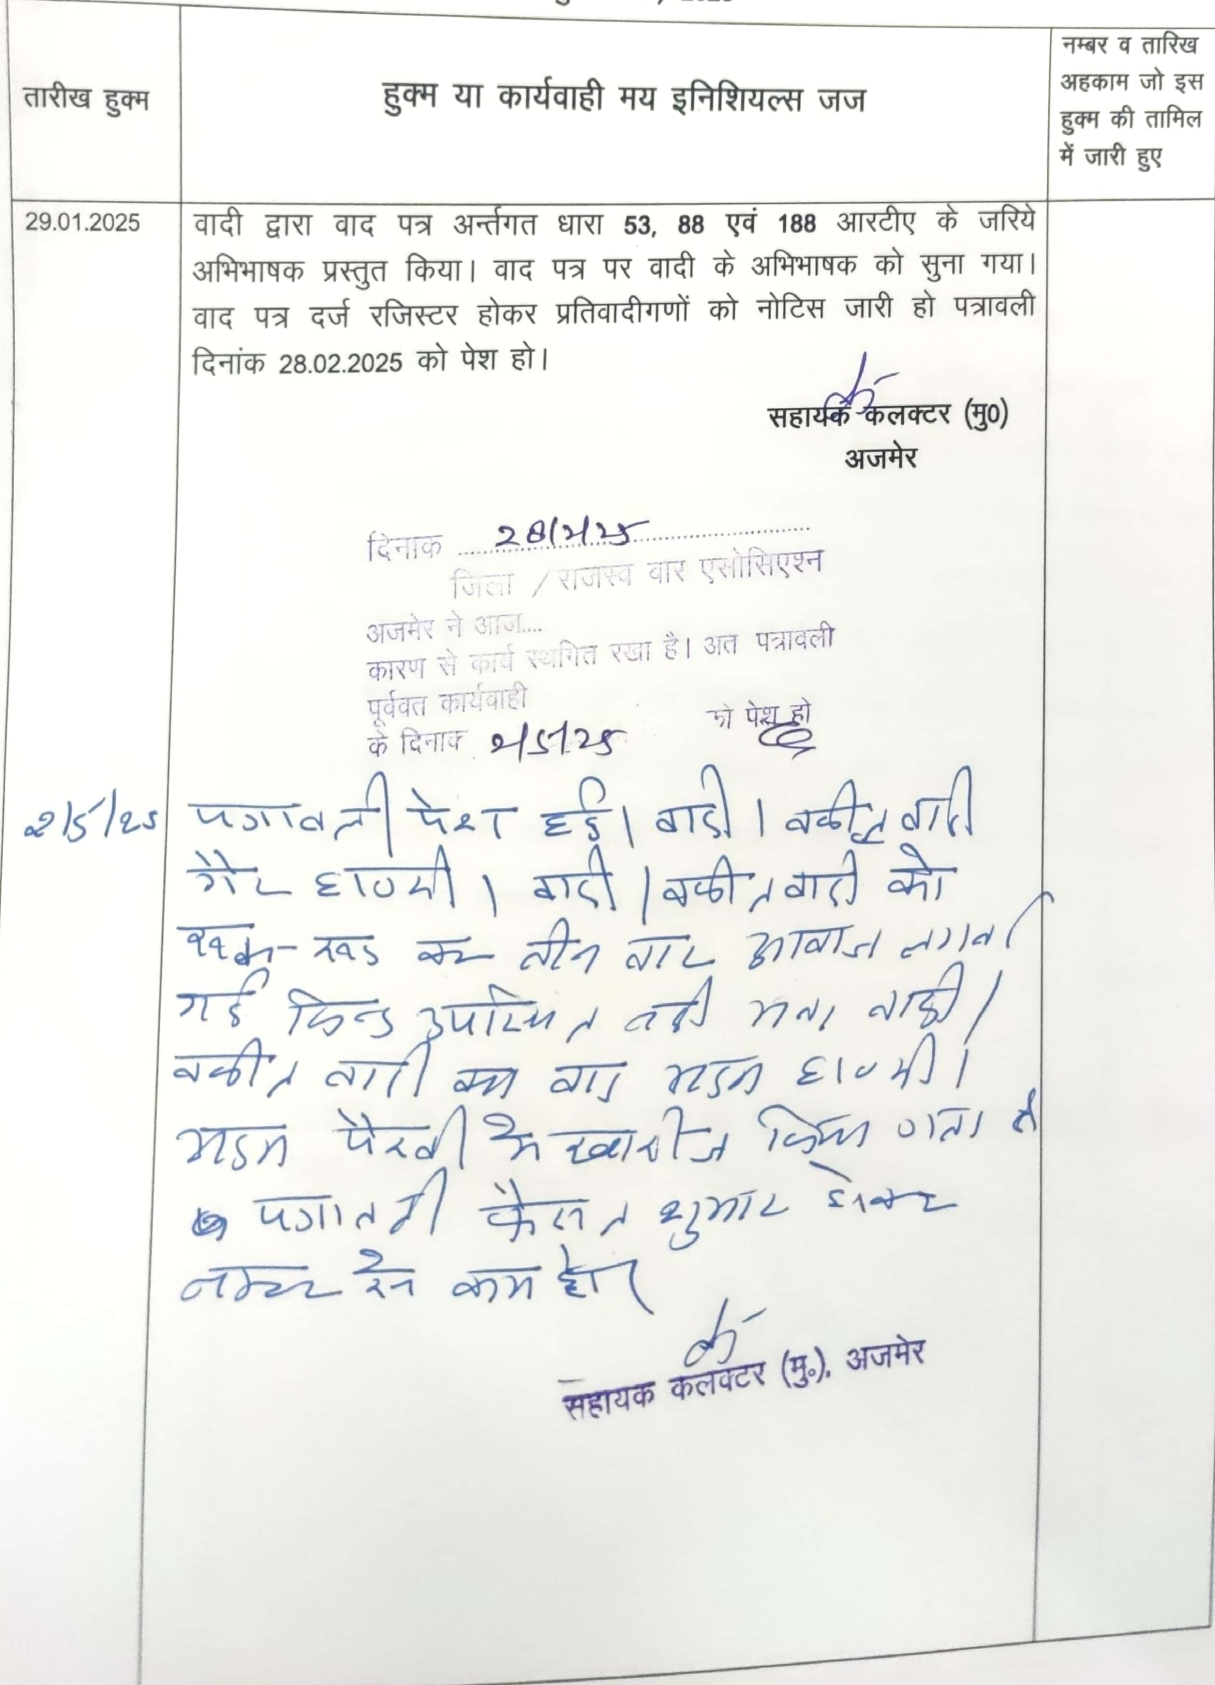 तारीख हुक्म
हुक्म या कार्यवाही मय इनिशियल्स जज
नम्बर व तारिख
अहकाम जो इस
हुक्म की तामिल
में जारी हुए
29.01.2025
वादी द्वारा वाद पत्र अर्न्तगत धारा 53, 88 एवं 188 आरटीए के जरिये
अभिभाषक प्रस्तुत किया। वाद पत्र पर वादी के अभिभाषक को सुना गया।
वाद पत्र दर्ज रजिस्टर होकर प्रतिवादीगणों को नोटिस जारी हो पत्रावली
दिनांक 28.02.2025 को पेश हो।
सहायक कलक्टर (मु0)
अजमेर
दिनाक 28/2/25
जिला / राजस्व बार एसोसिएश्न
अजमेर ने आज....
कारण से कार्य स्थगित रखा है। अत पत्रावली
पूर्ववत कार्यवाही
के दिनाक 2/5/25 को पेश हो
2/5/25
पत्रावली पेश हुई। वादी / वकील वादी
गैर हाजरी। वादी / वकील वादी को
रूक-रूक कर तीन बार आवाज लगवाई
गई किन्तु उपस्थित नही अतः वादी /
वकील वादी का वाद अदम हाजरी।
अदम पैरवी मे खारीज किया जाता है
पत्रावली फैसल शुमार होकर
नम्बर से कम हो।
सहायक कलक्टर (मु.), अजमेर